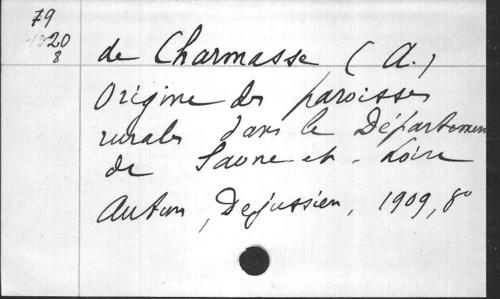 79
20
8
de Charmasse (A.)
Origine des paroisses
rurales dans le Département
de Saone-et-Loire
Autun, Dejussieu, 1909, 8°